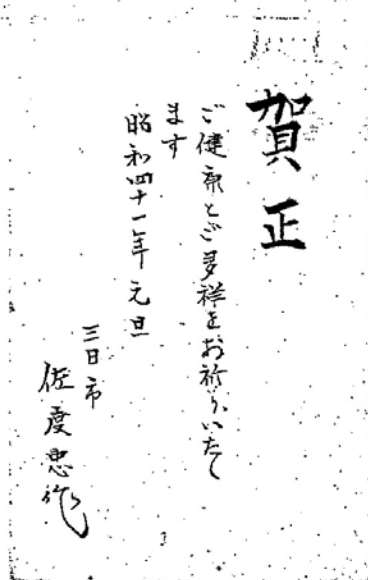 賀正
ご健康とご多祥をお祈りいたし
ます
昭和四十一年元旦
三日市
佐度忠作